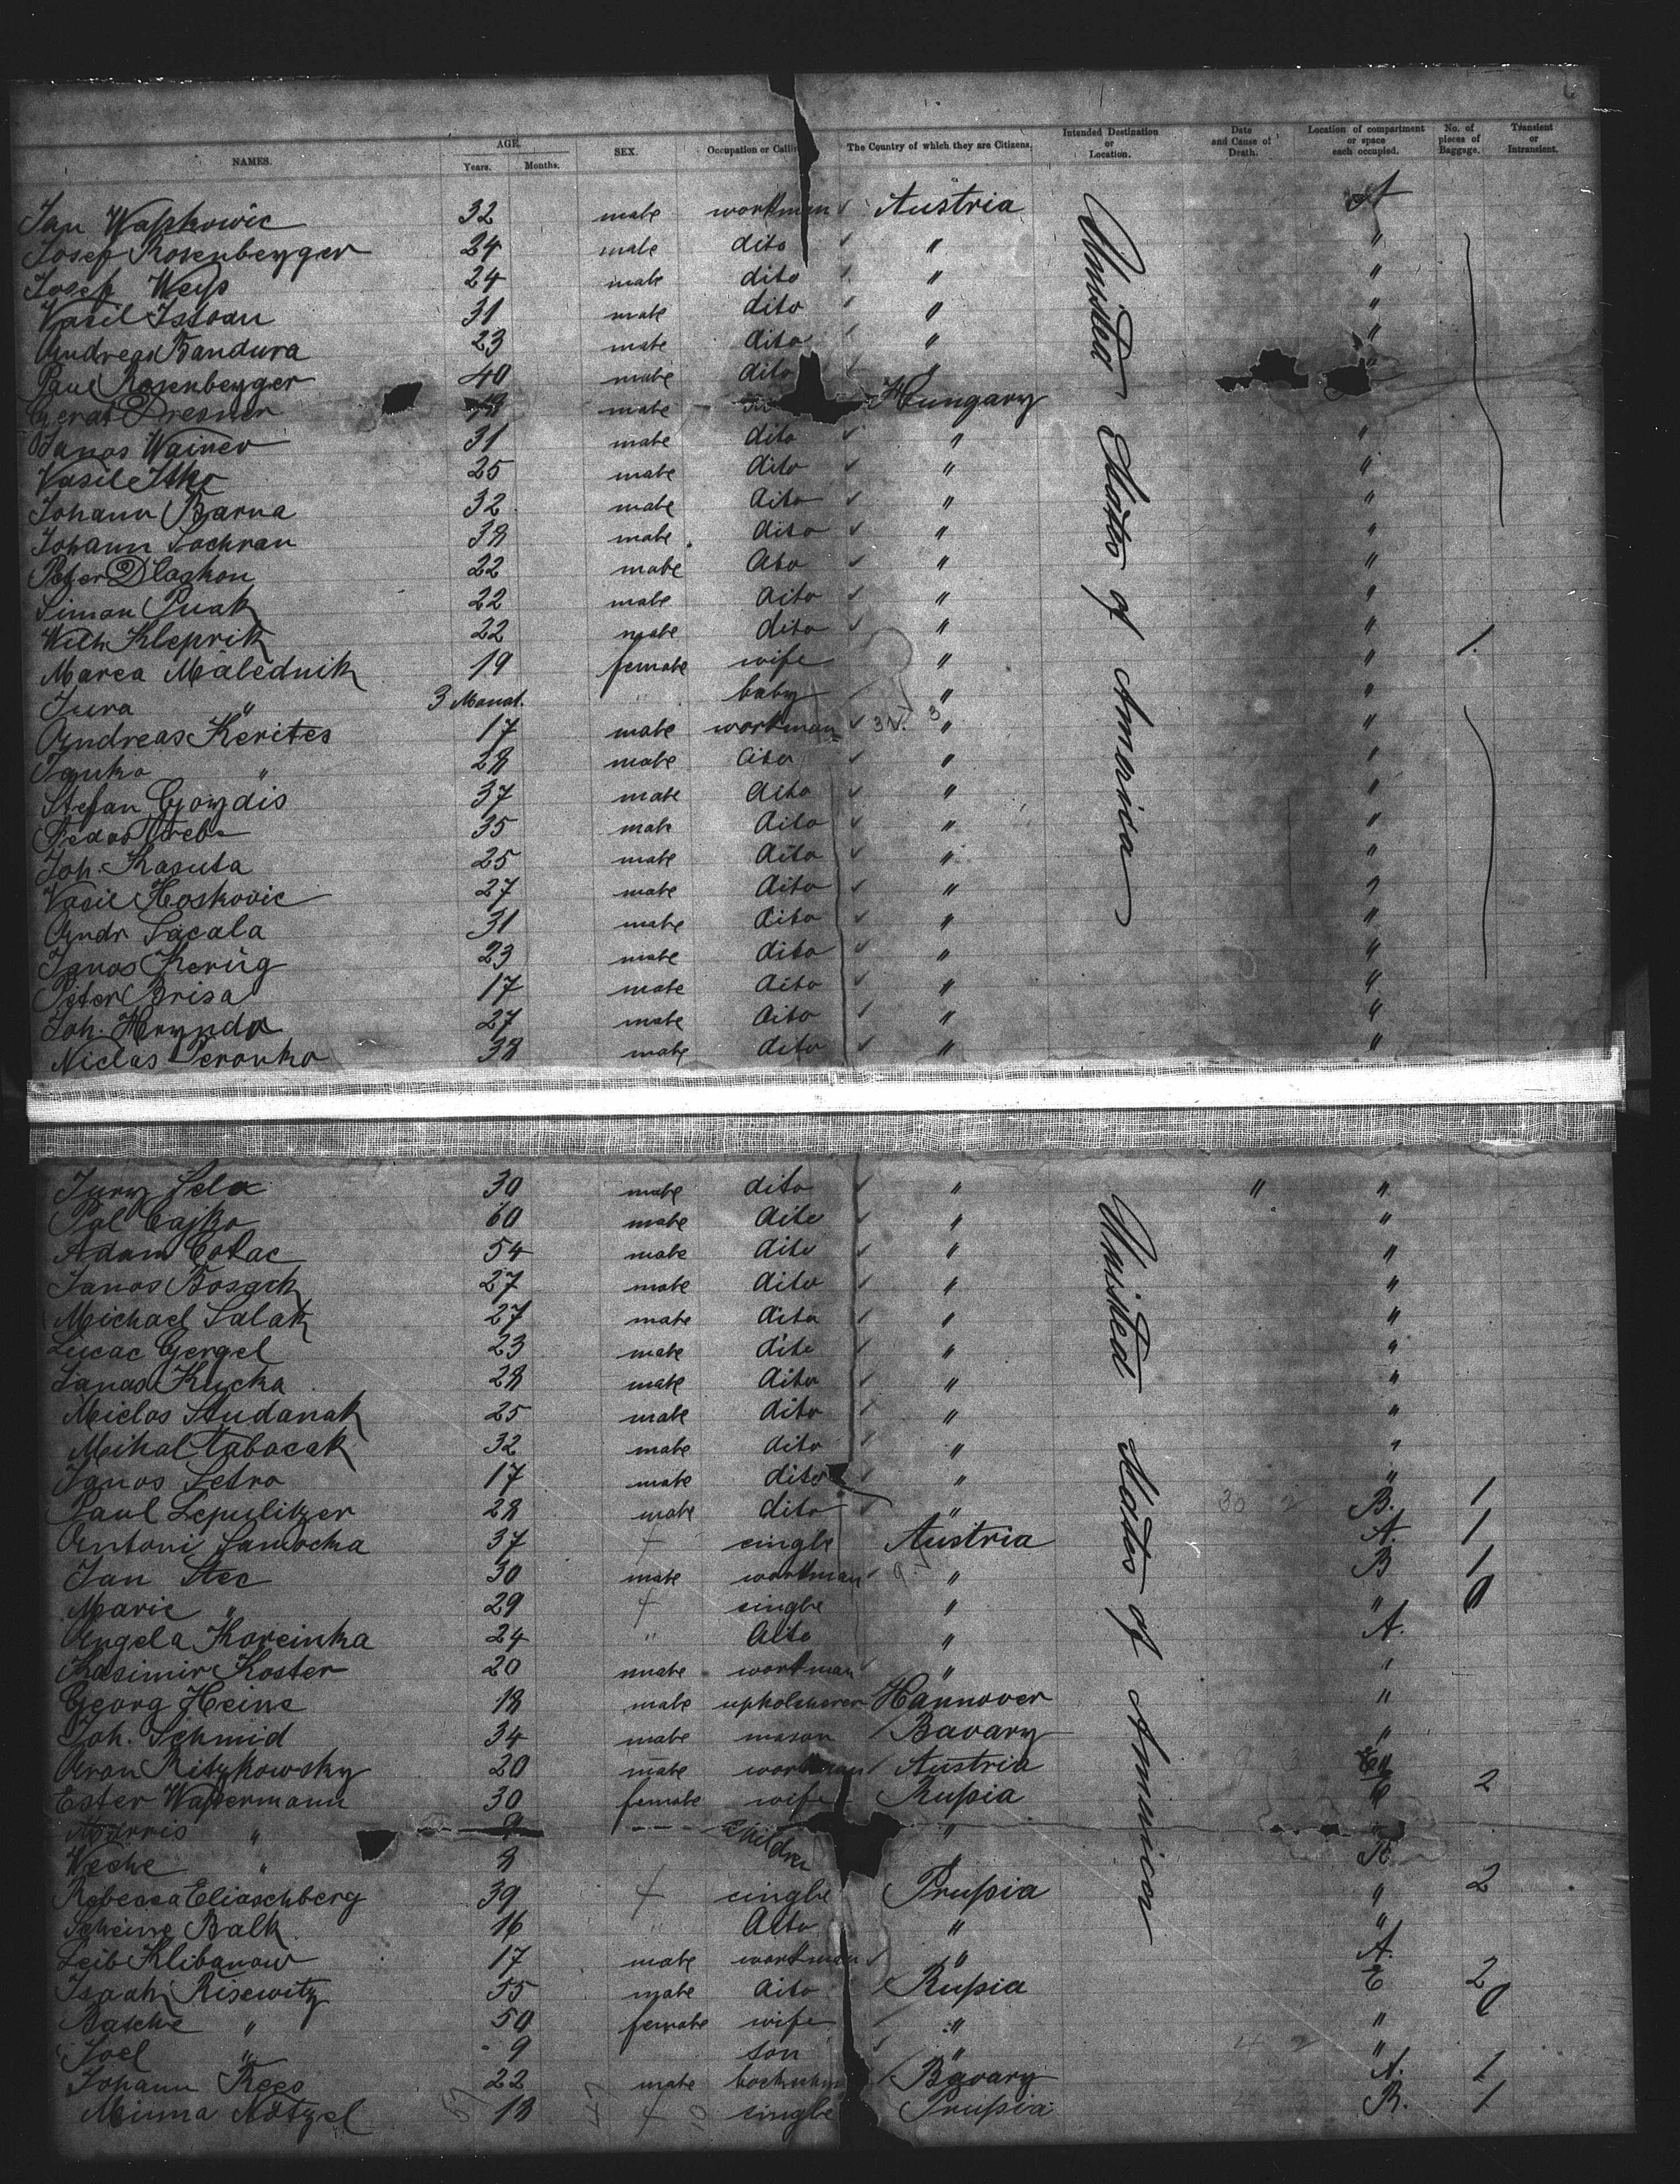 NAMES. AGE. Years. Months. SEX. Occupation or Calling The Country of which they are Citizens. Intended Destination or Location. Date and Cause of Death. Location of compartment or space each occupied. No. of pieces of Baggage. Transient or Intransient.
United States of America
Jan 32 male workman Austria A
Josef Rosenberger 24 male dito " "
Josef Weiß 24 male dito " "
Vasil Istvan 31 male dito " "
Andreas Bandura 23 male dito " "
Paul Rosenberger 40 male dito " "
Dresner 19 male Hungary
Janos Wainer 31 male dito " "
Vasil Itko 25 male dito " "
Johann Barna 32 male dito " "
Johann Lochran 38 male dito " "
Peter 22 male dito " "
Simon 22 male dito " "
Kleprik 22 male dito " "
Marca Malednik 19 female wife " " 1.
Jura " 3 Monat. " baby " "
Andreas Kerites 17 male workman " "
Janko " 28 male dito " "
Stefan Goydis 37 male dito " "
Fedor 35 male dito " "
Joh. Kasuta 25 male dito " "
Vasil Hoskovic 27 male dito " "
Andr Sacala 31 male dito " "
Janos Kerüg 23 male dito " "
Peter Brisa 17 male dito " "
Joh. Hrynda 27 male dito " "
Niclas Peronko 38 male dito " "
United States of America
Jury Sela 30 male dito " " "
Pal Cajko 60 male dito " "
Adam Colac 54 male dito " "
Janos Bosach 27 male dito " "
Michael Salak 27 male dito " "
Lucac Gergel 23 male dito " "
Janos Kucka 28 male dito " "
Miclos Studanak 25 male dito " "
Mihal Tabacak 32 male dito " "
Janos Petro 17 male dito " "
Paul Lepulitzer 28 male dito " B. 1
Antoni Samocka 37 single Austria A. 1
Jan Stec 30 male workman " B 1
Marie " 29 single " "
Angela Korcinka 24 " dito " A.
Kasimir Koster 20 male workman " "
Georg Heine 18 male upholsterer Hannover "
Joh. Schmid 34 male mason Bavary "
Aron Ritzkowsky 20 male workman Austria
Ester Waßermann 30 female wife Rußia E 2
Morris " 9 children "
Wecke " 8 "
Rebecca Eliaschberg 39 single Prußia " 2
Scheine Balk 16 " dito " "
Leib Klibanow 17 male workman " A.
Isaak Risewitz 55 male dito Rußia E 2
Basche " 50 female wife " "
Joel " 9 son " "
Johann Rees 22 male Bavary A. 1
Minna Nötzel 18 single Prußia B. 1